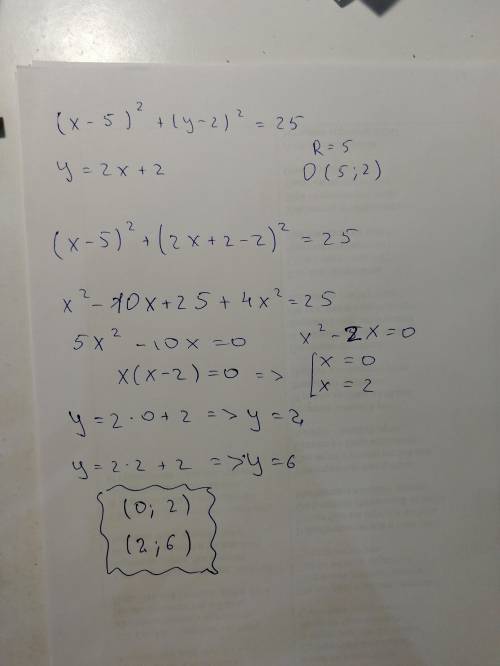 (x-5)² + (y-2)² = 25
y = 2x + 2
R = 5
O(5;2)
(x-5)² + (2x+2-2)² = 25
x² - 10x + 25 + 4x² = 25
5x² - 10x = 0
x² - 2x = 0
x(x-2) = 0 => [x = 0
x = 2
y = 2·0 + 2 => y = 2
y = 2·2 + 2 => y = 6
(0; 2)
(2; 6)